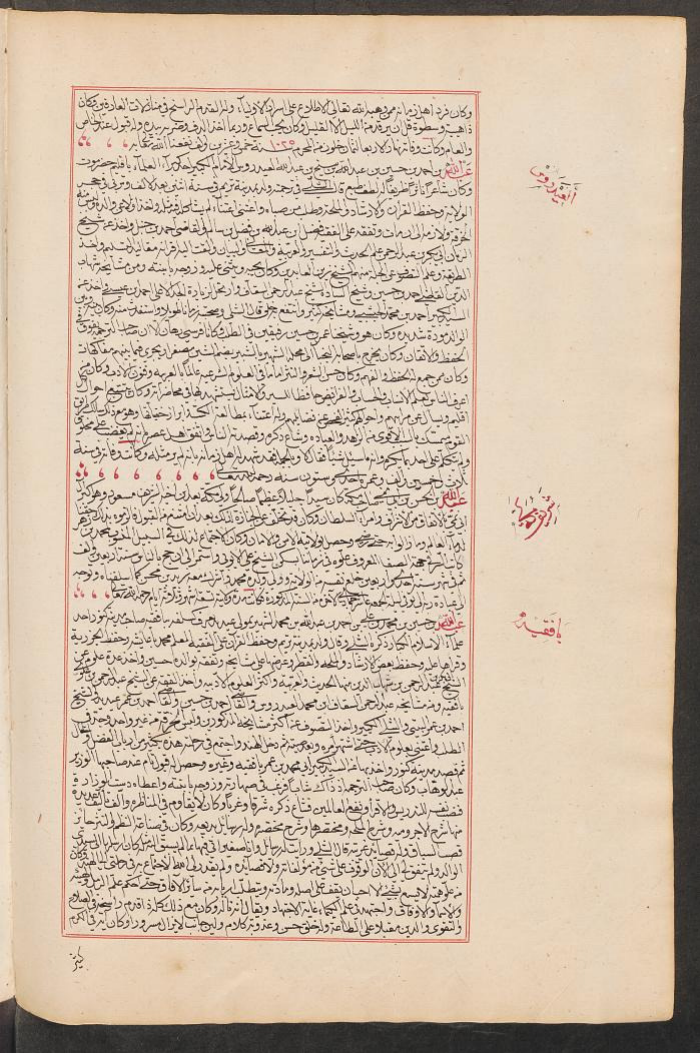 وكان فرد اهل زمانه ممن وهبه الله تعالى الاطلاع على اسرار الاولياء وله القدم الراسخ في منازلات العارفين وكان
ذا هيبة وسطوة قل ان يرقد من الليل الا القليل وكان يحب السماع وربما اخذ الدف وضرب بيده وله قبول عند الخاص
والعام وكانت وفاته نهار الاربعا ثمان خلون من المحرم ١٠٢٥ سنة خمس وعشرين والف نفعنا الله تعالى به
عبد الله بن احمد بن حسين بن عبد الله بن شيخ بن عبد الله العيدروس الامام الكبير احد كبراء العلماء باقليم حضرموت
العيدروس
وكان شاعرا ناثرا ظريفا لطيف الطبع قال الشلي في ترجمته ولد بمدينة تريم في سنة اثنين بعد الالف وتربى في حجر
الولاية وحفظ القران والارشاد والملحة وطلب من صباه واعتنى
الخرقة ولازمه الى ان مات وتفقه على الفقيه فضل بن عبد الله بن فضل بن سالم والقاضي احمد بن حسين واخذ عن شيخ
الزمان ابي بكر بن عبد الرحمن علم الحديث والتفسير والعربية والمعاني والبيان
الطريقة وعلم التصوف عن الجد منهم الشيخ زين العابدين وكان يحبه ويثني عليه وزوجه بابنته ومن مشايخه شهاب
الدين القاضي احمد بن حسين وشيخ السادة الشيخ عبد الرحمن السقاف وارتحل لزيارة الجد الاعلى احمد بن عيسى واخذ عن
السيد الكبير احمد بن محمد الحبشي ومشايخه كثير وانتفع به خلق قال الشلي وصحبته زمانا طويلا واستفدت منه وكان بينه وبين
الوالد مودة شديدة وكان هو وشيخنا عمر بن حسين رفيقين في الطلب وكانا فرسي رهان الا ان صاحب الترجمة يفوق في
الحفظ والاتقان وكان يحترم
وكان ممن جمع له الحفظ والفهم وكان حسن الشعر والنثر اماما في العلوم الشرعية عالما بالعربية وفنون الادب وكان من
اعرف الناس بعلم الانساب والحساب والفرائض حافظا للسير والامثال يستشهد بها في محاضراته وكان يتتبع احوال
اقليمه ويسال عن مراتبهم واحوالهم
التقوى متمسك بالسبب الاقوى من الزهد والعبادة وشاع ذكره وقصده الناس
ولم يشتك على احد بمكروه وانه لم يسئل شيئا فقال لا وبالجملة فقد شهد له اهل زمانه بانه لم ير مثله وكانت وفاته في سنة
ثلاث وخمسين والف وعمره احد وستون سنة رحمه الله تعالى
عبد الله بن حسن بن ابي نمي شريف مكة كان سيدا جليلا عظيما صالحا ولي مكة بعد ابن اخيه الشريف مسعود وهو اكبر
شريف مكة
ابي نمي بالاتفاق من الاشراف ومن السلطان وكان قد تخلف عن جنازة الملك بعد ان امتنع من القبول فالزموه بذلك حقنا
لدماء العالم وما زالوا به حتى رضي وحصل بولايته الامن والامان وكان الاجتماع لذلك في السبيل المنسوب لمحمد بن مزهر
كاتب السر
ممن في شهر سنة احد واربعين خلع نفسه من الولاية وولي ولده محمد واشرك معه زيد بن محسن كما سلفناه وتوجه
الى عبادة ربه الى ان توفي ليلة الجمعة عاشر جمادى الاخرة من السنة المذكورة فكانت مدة ولايته تسعة اشهر وثلاثة ايام رحمه الله تعالى
عبد الله بن حسين بن محمد بن علي بن احمد بن عبد الله بن محمد الشهير بمولى عيديد
بافقيه
علماء الاسلام الكبار ذكره الشلي وقال ولد بمدينة تريم وحفظ القرآن على الفقيه المعلم محمد باعائشه وحفظ الجزرية
وقراها عليه وحفظ بعض الارشاد والملحة والقطر وعرضها على مشايخه وتفقه بوالده حسين واخذ عدة علوم عن
الشيخ عبد الرحمن بن شهاب الدين منها الحديث والعربية واكثر العلوم الادبية واخذ الفقه عن الشيخ عبد الرحمن بن علوي
بافقيه ومن مشايخه عبد الرحمن السقاف ابن محمد العيدروس والقاضي احمد بن حسين والقاضي احمد بن عمر عيديد والشيخ
احمد بن عمر البيتي والشيخ الكبير واخذ التصوف عن اكثر مشايخه المذكورين ولبس الخرقة من غير واحد وجد في
الطلب واعتنى بعلوم الادب حتى اشتهر امره وبعد صيته ثم دخل الهند واجتمع في رحلته هذه بكثير من ارباب الفضل والحال
ثم قصد مدينة كنور واخذ بها عن السيد الكبير ابي محمد بن عمر بافقيه وغيره وحصل له قبول تام عند صاحبها الوزير
عبد الوهاب وكان صاحب الترجمة اذ ذاك شابا فرغب في مصاهرته وزوجه بابنته واعطاه دست الوزارة
فنصب نفسه للتدريس والاقراء ونفع العالمين فشاع ذكره شرقا وغربا وكان لا يقاوم في المناظرة والف تاليف عديدة
منها شرح الاجرومية وشرح الملحة ومختصرها وشرح مختصره وله رسائل بديعة وكان في صناعة النظم والنثر حائز
قصب السباق وله قصائد غريبة قال الشلي ورايت له رسائل وانا صغير
الوالد ولم يتفق لي الى الان الوقوف على شيء من مؤلفاته ولا قصائده ولم يقدر لي الله الاجتماع به في رحلتي الى الهند وكان
مع علو همته لا يسمع بشيء الا احب ان يقف على اصله ومادته ويتطلب اربابه من سائر الآفاق حتى حكم علم الرمل والهيئة
والاسماء والاوفاق واجتهد في علم الكيمياء غاية الاجتهاد ويقال انه ناله وكان مع ذلك كله ذا قدم راسخة في الصلاح
والتقوى والدين مقبلا على الطاعة وله خلق حسن وعذوبة كلام ولين جانب لا يزال مسرورا وكان آية في الكرم
كثير